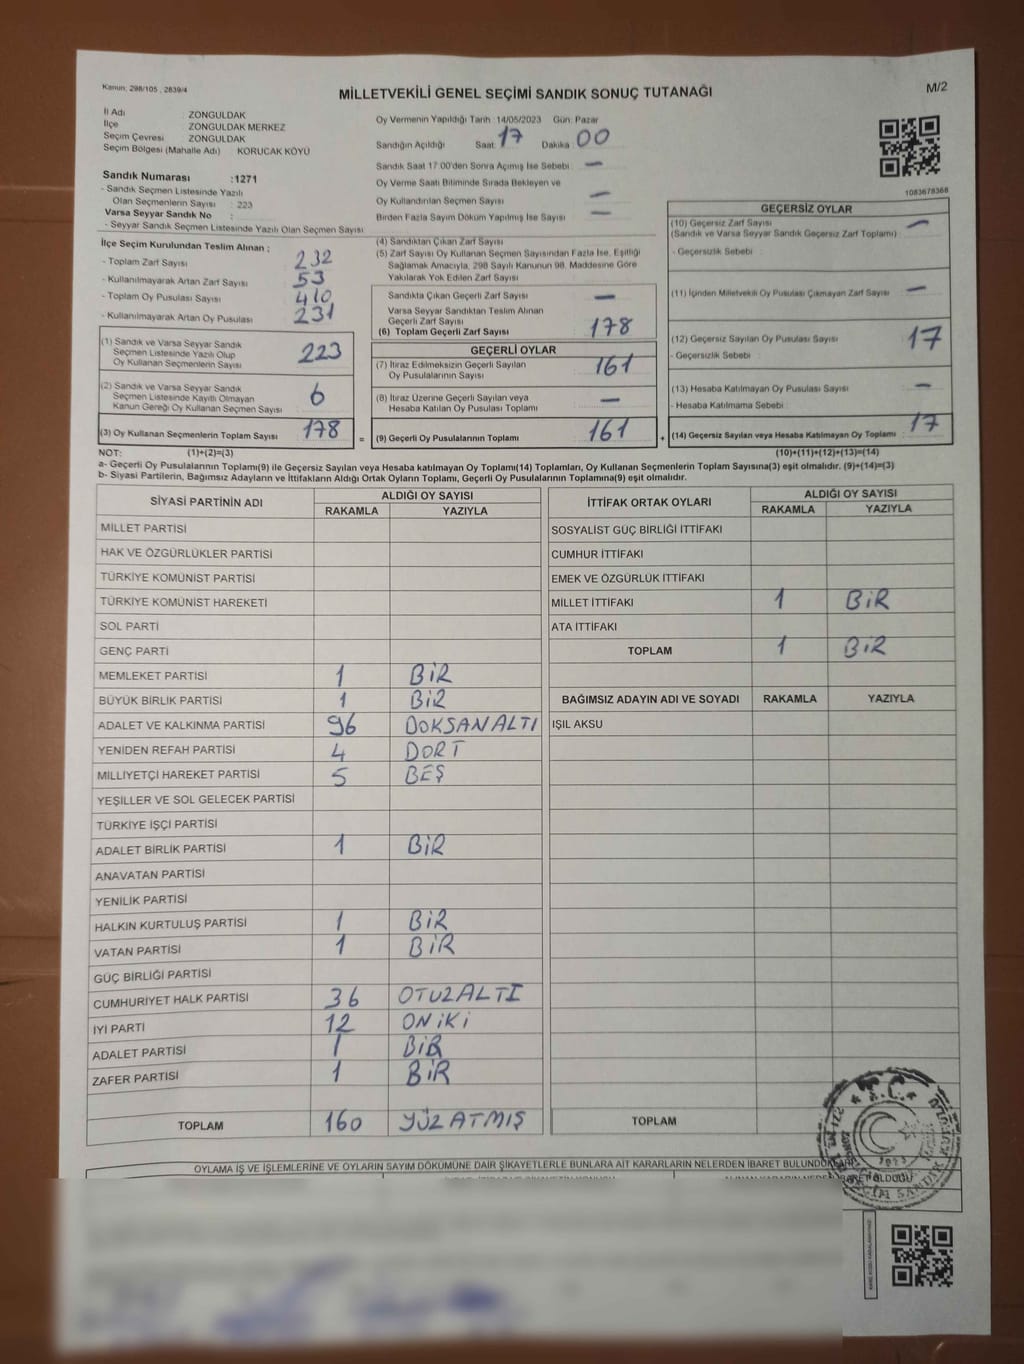 Kanun: 298/105 , 2839/4
MİLLETVEKİLİ GENEL SEÇİMİ SANDIK SONUÇ TUTANAĞI
M/2
İl Adı : ZONGULDAK
İlçe : ZONGULDAK MERKEZ
Seçim Çevresi : ZONGULDAK
Seçim Bölgesi (Mahalle Adı) : KORUCAK KÖYÜ
Oy Vermenin Yapıldığı Tarih :14/05/2023 Gün: Pazar
Sandığın Açıldığı Saat: 17 Dakika: 00
Sandık Saat 17:00'den Sonra Açımış İse Sebebi: —
Oy Verme Saati Bitiminde Sırada Bekleyen ve
Oy Kullandırılan Seçmen Sayısı —
Birden Fazla Sayım Döküm Yapılmış İse Sayısı —
1083678368
Sandık Numarası :1271
- Sandık Seçmen Listesinde Yazılı
Olan Seçmenlerin Sayısı : 223
Varsa Seyyar Sandık No :
- Seyyar Sandık Seçmen Listesinde Yazılı Olan Seçmen Sayısı
İlçe Seçim Kurulundan Teslim Alınan :
- Toplam Zarf Sayısı 232
- Kullanılmayarak Artan Zarf Sayısı 53
- Toplam Oy Pusulası Sayısı 410
- Kullanılmayarak Artan Oy Pusulası 231
(1) Sandık ve Varsa Seyyar Sandık
Seçmen Listesinde Yazılı Olup
Oy Kullanan Seçmenlerin Sayısı 223
(2) Sandık ve Varsa Seyyar Sandık
Seçmen Listesinde Kayıtlı Olmayan
Kanun Gereği Oy Kullanan Seçmen Sayısı 6
(3) Oy Kullanan Seçmenlerin Toplam Sayısı 178 =
(4) Sandıktan Çıkan Zarf Sayısı
(5) Zarf Sayısı Oy Kullanan Seçmen Sayısından Fazla İse, Eşitliği
Sağlamak Amacıyla, 298 Sayılı Kanunun 98. Maddesine Göre
Yakılarak Yok Edilen Zarf Sayısı
Sandıkta Çıkan Geçerli Zarf Sayısı —
Varsa Seyyar Sandıktan Teslim Alınan
Geçerli Zarf Sayısı
(6) Toplam Geçerli Zarf Sayısı 178
GEÇERLİ OYLAR
(7) İtiraz Edilmeksizin Geçerli Sayılan
Oy Pusulalarının Sayısı 161
(8) İtiraz Üzerine Geçerli Sayılan veya
Hesaba Katılan Oy Pusulası Toplamı —
(9) Geçerli Oy Pusulalarının Toplamı 161 +
GEÇERSİZ OYLAR
(10) Geçersiz Zarf Sayısı
(Sandık ve Varsa Seyyar Sandık Geçersiz Zarf Toplamı) : —
- Geçersizlik Sebebi :
(11) İçinden Milletvekili Oy Pusulası Çıkmayan Zarf Sayısı —
(12) Geçersiz Sayılan Oy Pusulası Sayısı : 17
- Geçersizlik Sebebi
(13) Hesaba Katılmayan Oy Pusulası Sayısı —
- Hesaba Katılmama Sebebi
(14) Geçersiz Sayılan veya Hesaba Katılmayan Oy Toplamı 17
NOT: (1)+(2)=(3) (10)+(11)+(12)+(13)=(14)
a- Geçerli Oy Pusulalarının Toplamı(9) ile Geçersiz Sayılan veya Hesaba katılmayan Oy Toplamı(14) Toplamları, Oy Kullanan Seçmenlerin Toplam Sayısına(3) eşit olmalıdır. (9)+(14)=(3)
b- Siyasi Partilerin, Bağımsız Adayların ve İttifakların Aldığı Ortak Oyların Toplamı, Geçerli Oy Pusulalarının Toplamına(9) eşit olmalıdır.
SİYASİ PARTİNİN ADI ALDIĞI OY SAYISI
RAKAMLA YAZIYLA
MİLLET PARTİSİ
HAK VE ÖZGÜRLÜKLER PARTİSİ
TÜRKİYE KOMÜNİST PARTİSİ
TÜRKİYE KOMÜNİST HAREKETİ
SOL PARTİ
GENÇ PARTİ
MEMLEKET PARTİSİ 1 BİR
BÜYÜK BİRLİK PARTİSİ 1 BİR
ADALET VE KALKINMA PARTİSİ 96 DOKSANALTI
YENİDEN REFAH PARTİSİ 4 DORT
MİLLİYETÇİ HAREKET PARTİSİ 5 BEŞ
YEŞİLLER VE SOL GELECEK PARTİSİ
TÜRKİYE İŞÇİ PARTİSİ
ADALET BİRLİK PARTİSİ 1 BİR
ANAVATAN PARTİSİ
YENİLİK PARTİSİ
HALKIN KURTULUŞ PARTİSİ 1 BİR
VATAN PARTİSİ 1 BİR
GÜÇ BİRLİĞİ PARTİSİ
CUMHURİYET HALK PARTİSİ 36 OTUZALTI
İYİ PARTİ 12 ONİKİ
ADALET PARTİSİ 1 BİR
ZAFER PARTİSİ 1 BİR
TOPLAM 160 YÜZ ATMIŞ
İTTİFAK ORTAK OYLARI ALDIĞI OY SAYISI
RAKAMLA YAZIYLA
SOSYALİST GÜÇ BİRLİĞİ İTTİFAKI
CUMHUR İTTİFAKI
EMEK VE ÖZGÜRLÜK İTTİFAKI
MİLLET İTTİFAKI 1 BİR
ATA İTTİFAKI
TOPLAM 1 BİR
BAĞIMSIZ ADAYIN ADI VE SOYADI RAKAMLA YAZIYLA
IŞIL AKSU
TOPLAM
T.C.
1923
OYLAMA İŞ VE İŞLEMLERİNE VE OYLARIN SAYIM DÖKÜMÜNE DAİR ŞİKAYETLERLE BUNLARA AİT KARARLARIN NELERDEN İBARET BULUNDUKLARI